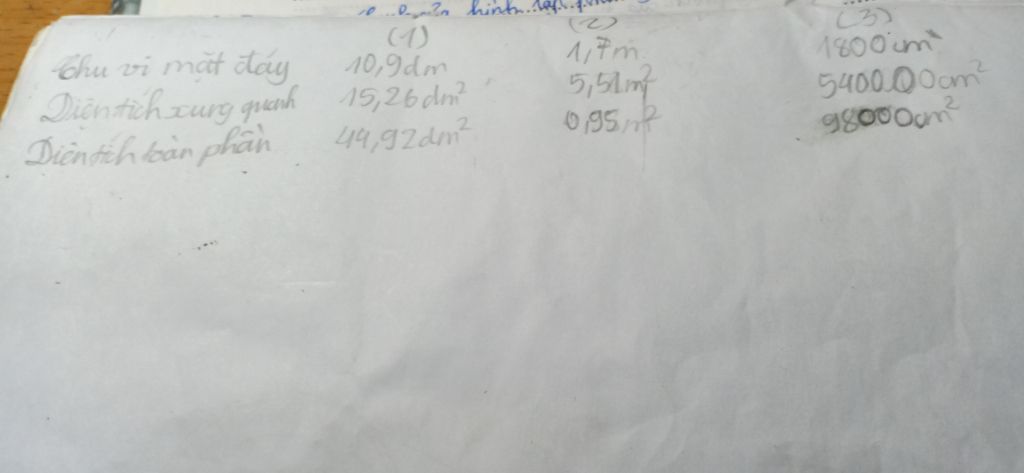 hình lập
(1) (2) (3)
Chu vi mặt đáy 10,9dm 1,7m 1800cm
Diện tích xung quanh 15,26dm² 5,51m² 540000cm²
Diện tích toàn phần 44,92dm² 0,95m² 98000cm²